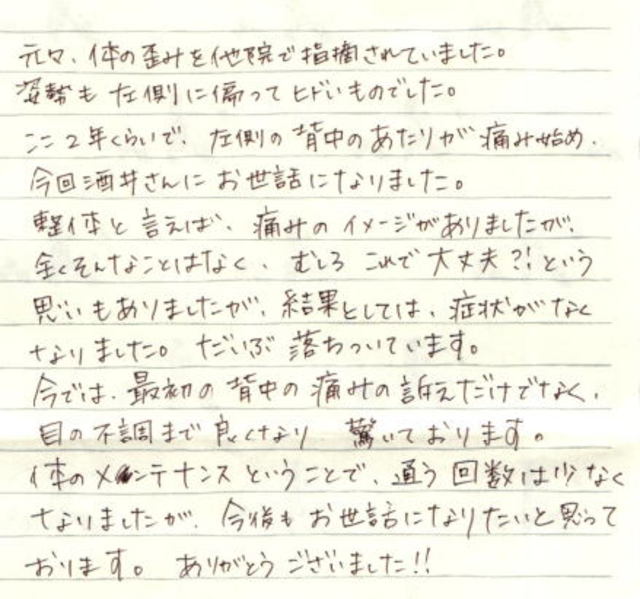 元々、体の歪みを他院で指摘されていました。
姿勢も左側に偏ってヒドいものでした。
ここ2年くらいで、左側の背中のあたりが痛み始め、
今回酒井さんにお世話になりました。
整体と言えば、痛みのイメージがありましたが、
全くそんなことはなく、むしろこれで大丈夫?!という
思いもありましたが、結果としては、症状がなく
なりました。だいぶ落ちついています。
今では、最初の背中の痛みの訴えだけでなく、
目の不調まで良くなり 驚いております。
体のメンテナンスということで、通う回数は少なく
なりましたが、今後もお世話になりたいと思って
おります。ありがとうございました!!